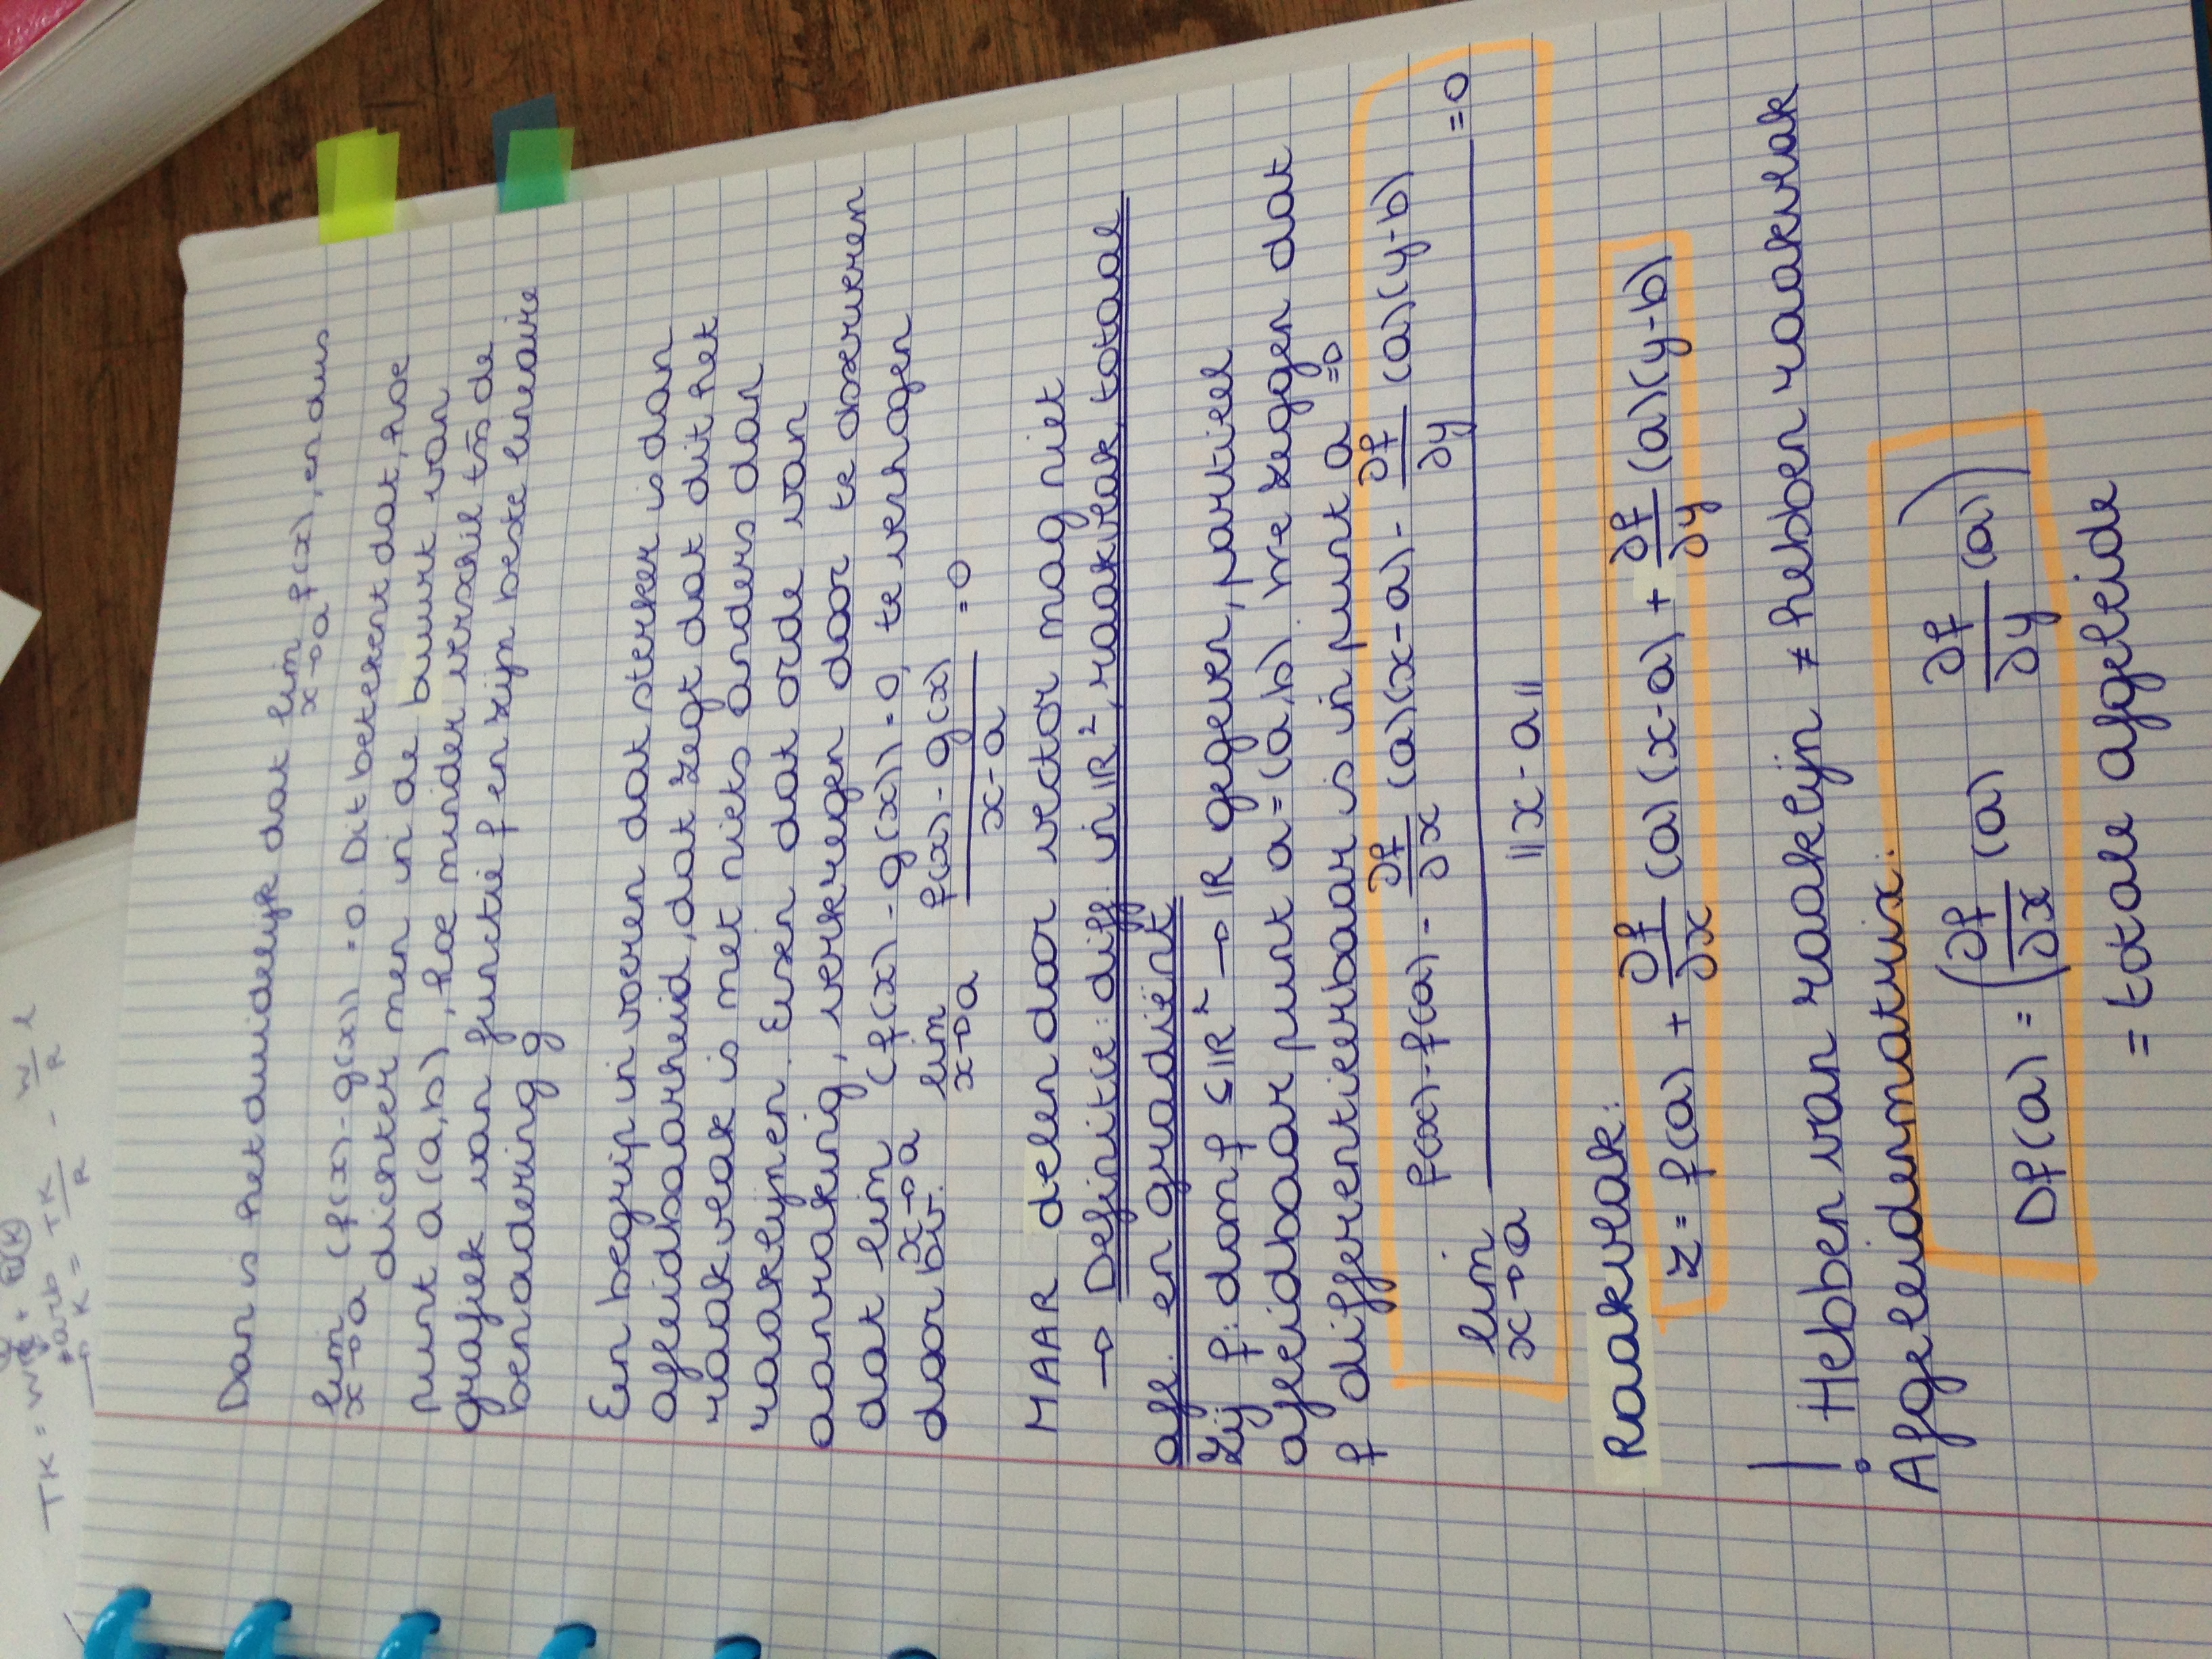 Dan is het duidelijk dat lim x→a f(x), en dus
lim x→a (f(x) - g(x)) = 0. Dit betekent dat, hoe
dichter men in de buurt van
punt a (a,b), hoe minder verschil tsn de
grafiek van functie f en zijn beste lineaire
benadering g
Een begrip in voeren dat sterker is dan
afleidbaarheid, dat zegt dat dit het
raakvlak is met niets anders dan
raaklijnen. Eisen dat orde van
aanraking, verkregen door te observeren
dat lim x→a (f(x) - g(x)) = 0, te verhogen
door bv. lim x→a f(x) - g(x) / x - a = 0
MAAR delen door vector mag niet
→ Definitie: diff. in ℝ², raakvlak, totaal
afl. en gradiënt
Zij f: dom f ⊆ ℝ² → ℝ gegeven, partieel
afleidbaar punt a = (a,b). We zeggen dat
f differentieerbaar is in punt a =0
lim x→a f(x) - f(a) - ∂f/∂x (a)(x-a) - ∂f/∂y (a)(y-b) / ||x-a|| = 0
Raakvlak:
z = f(a) + ∂f/∂x (a)(x-a) + ∂f/∂y (a)(y-b)
! Hebben van raaklijn ≠ hebben raakvlak
Afgeleidenmatrix:
Df(a) = (∂f/∂x (a) ∂f/∂y (a))
= totale afgeleide